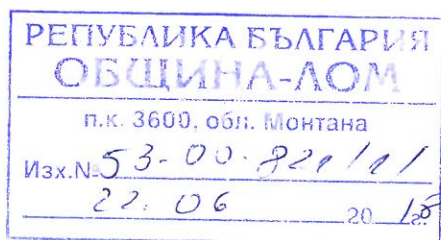 РЕПУБЛИКА БЪЛГАРИЯ
ОБЩИНА-ЛОМ
п.к. 3600, обл. Монтана
Изх.№ 53-00-821/1/
22. 06 2018г.